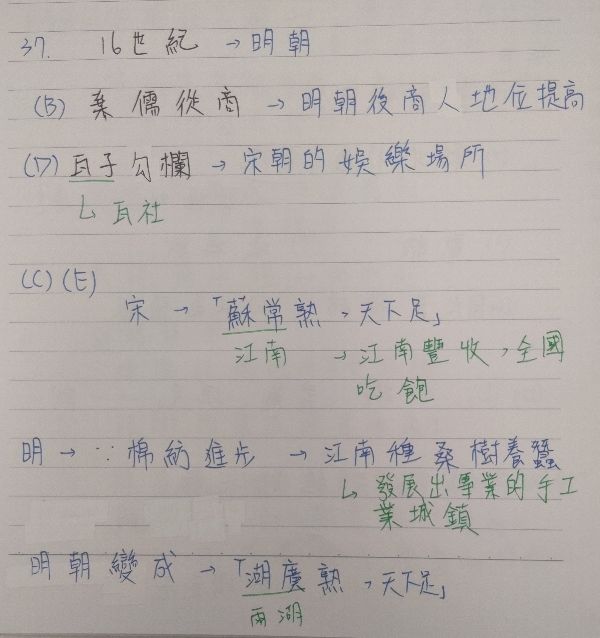 37. 16世紀 → 明朝
(B) 棄儒從商 → 明朝後商人地位提高
(D) 瓦子勾欄 → 宋朝的娛樂場所
↳ 瓦社
(C)(E)
宋 → 「蘇常熟,天下足」
江南 → 江南豐收,全國
吃飽
明 → ∵ 棉紡進步 → 江南種桑樹養蠶
↳ 發展出專業的手工
業城鎮
明朝變成 → 「湖廣熟,天下足」
兩湖